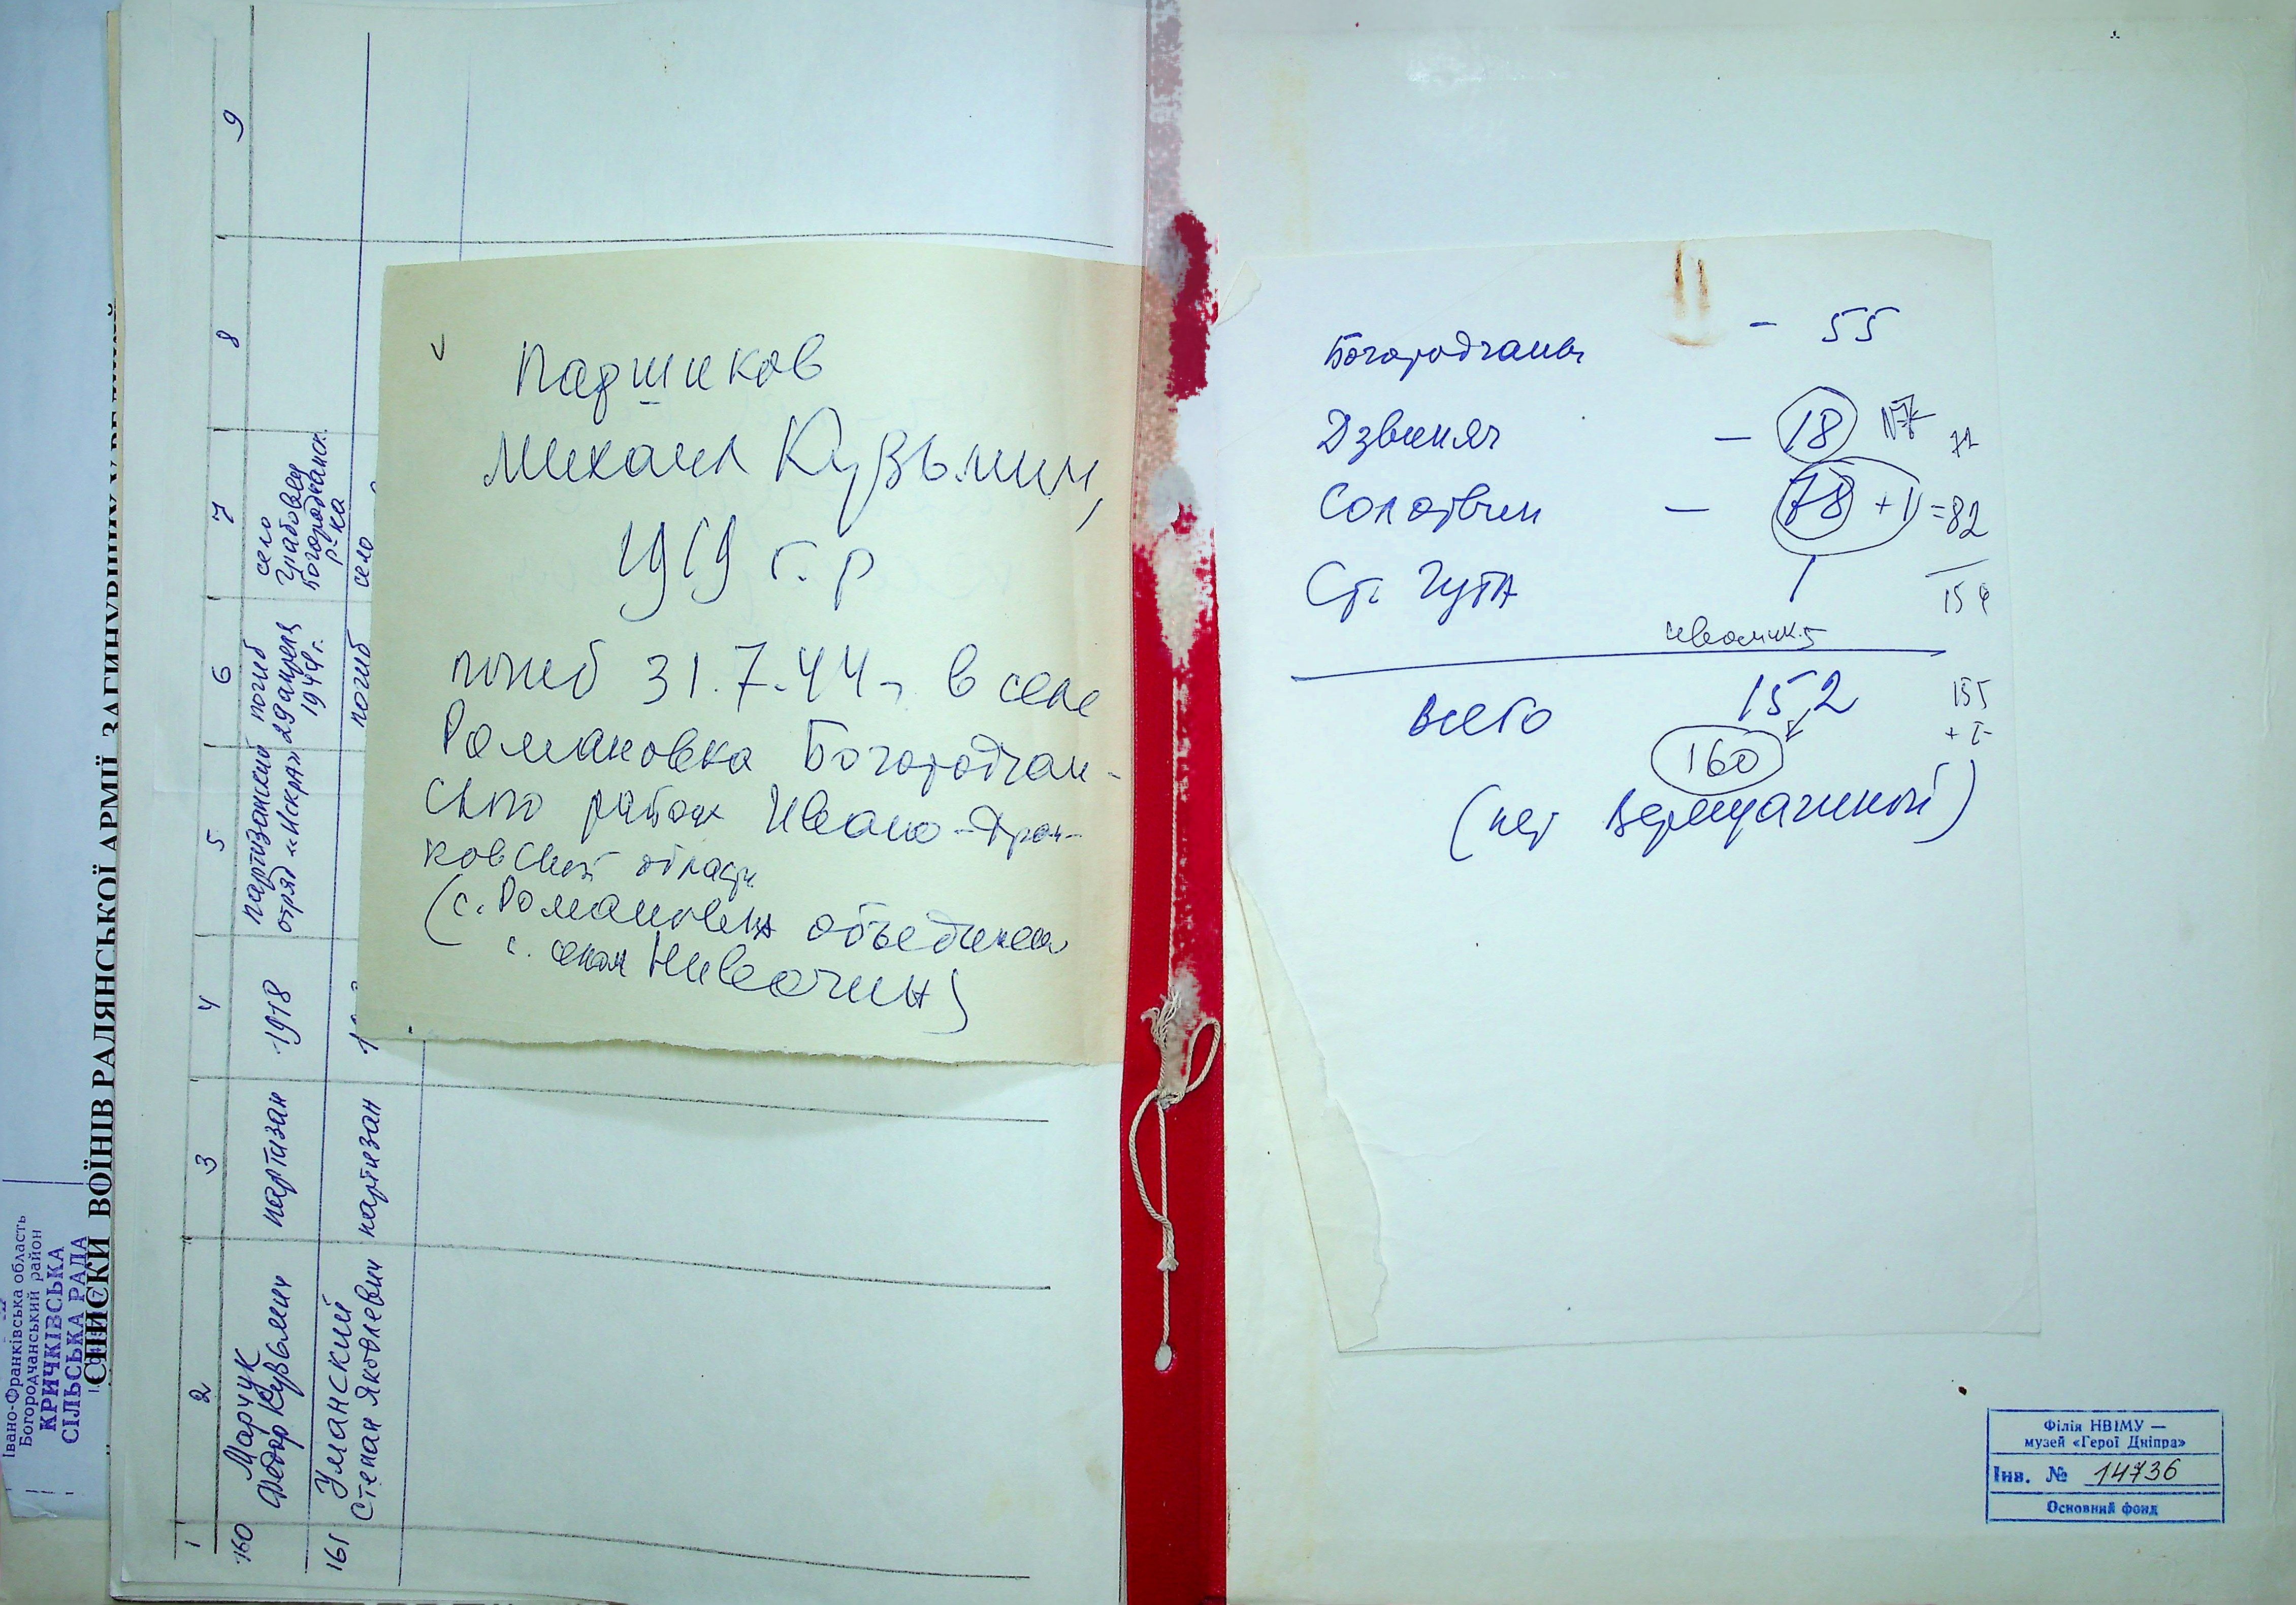 СПИСКИ ВОЇНІВ РАДЯНСЬКОЇ АРМІЇ,
Івано-Франківська область
Богородчанський район
КРИЧКІВСЬКА
СІЛЬСЬКА РАДА
1 2 3 4 5 6 7 8 9
160 Марчук Федор Кузьмич партизан 1918 партизанский отряд «Искра» погиб 29 апреля 1944 г. село Грабовец Богородчанск. р-ка
161 Уманский Степан Яковлевич партизан 1 погиб село
Паршиков
Михаил Кузьмич,
1919 г. р
погиб 31.7.44г. в селе
Романовка Богородчан-
ского района Ивано-Фран-
ковской области
(с. Романовка объединена
с. селом Нивочин)
Богородчаны - 55
Дзвиняч - 18 71
Солотвин - 78 + =82
Ст. Гута 1 154
всего 152 155
160
(нет Верещагиной)
Філія НВІМУ —
музей «Герої Дніпра»
Інв. № 14736
Основний фонд